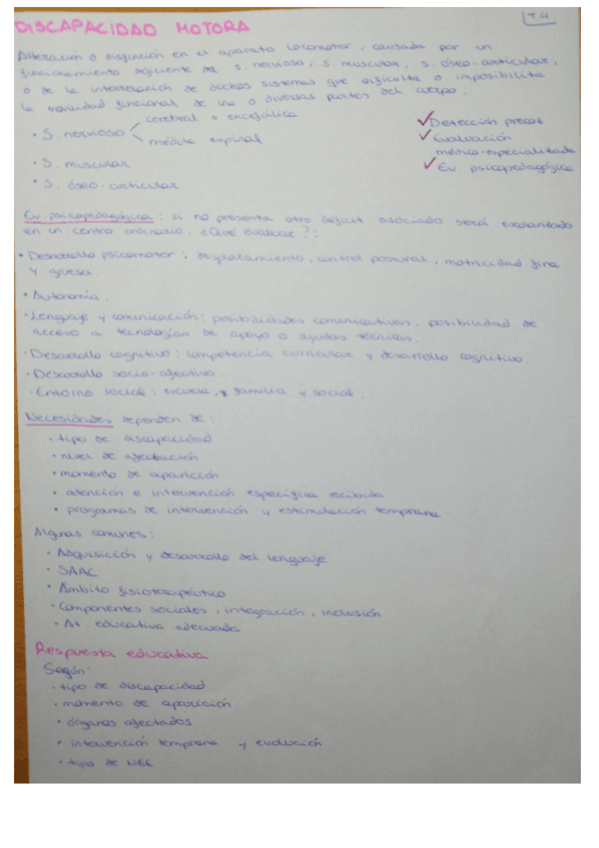 T.4
DISCAPACIDAD MOTORA
Alteración o disfunción en el aparato locomotor, causada por un
funcionamiento deficiente del s. nervioso, s. muscular, s. óseo-articular,
o de la interrelación de dichos sistemas que dificulta o imposibilita
la movilidad funcional de una o diversas partes del cuerpo.
· S. nervioso cerebral o encefálica
médula espinal
· S. muscular
· S. óseo-articular
✓ Detección precoz
✓ Evaluación
médico-especializada
✓ Ev. psicopedagógica
Ev. psicopedagógica: si no presenta otro déficit asociado será escolarizado
en un centro ordinario. ¿Qué evaluar?:
· Desarrollo psicomotor: desplazamiento, control postural, motricidad fina
y gruesa.
· Autonomía.
· Lenguaje y comunicación: posibilidades comunicativas, posibilidad de
acceso a tecnologías de apoyo o ayudas técnicas.
· Desarrollo cognitivo: competencia curricular y desarrollo cognitivo.
· Desarrollo socio-afectivo.
· Entorno social: escuela, familia y social.
Necesidades dependen de:
· tipo de discapacidad
· nivel de afectación
· momento de aparición
· atención e intervención específica recibida
· programas de intervención y estimulación temprana
Algunas comunes:
· Adquisición y desarrollo del lenguaje
· SAAC
· Ámbito fisioterapéutico
· Componentes sociales, integración, inclusión
· At. educativa adecuada
Respuesta educativa
Según:
· tipo de discapacidad
· momento de aparición
· órganos afectados
· intervención temprana y evolución
· tipo de NEE